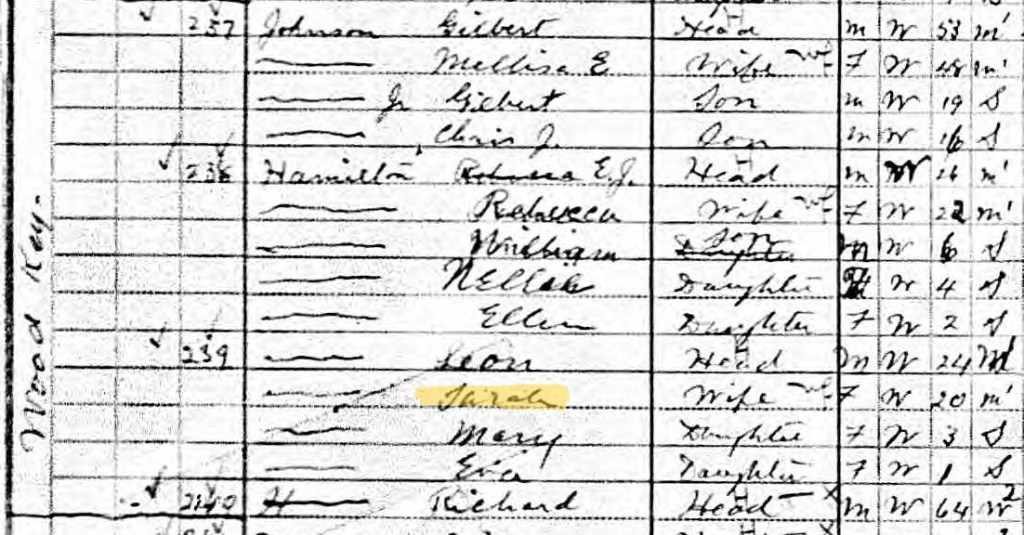 237 Johnson Gilbert Head m W 53 m'
Mellisa E Wife F W 48 m'
Jr Gilbert Son m W 19 S
Chris J. Son m W 16 S
238 Hamilton E.J. Head m W 26 m'
Rebecca Wife F W 22 m'
William Son M W 6 S
Nellie Daughter W 4 S
Ellen Daughter F W 2 S
239 Leon Head M W 24 M
Sarah Wife F W 20 m'
Mary Daughter F W 3 S
Eva Daughter F W 1 S
240 H Richard Head m W 64
Wood Key.